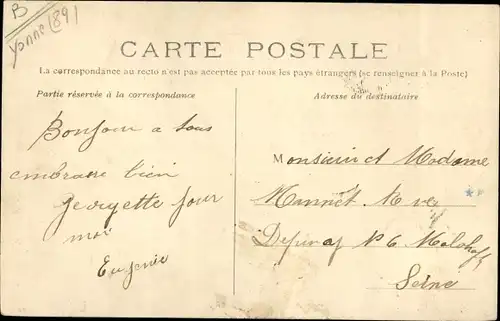 B
Yonne (89)
CARTE POSTALE
La correspondance au recto n'est pas acceptée par tous les pays étrangers (se renseigner à la Poste)
Partie réservée à la correspondance
Bonjour a tous
embrasse bien
Georgette pour
moi
Eugénie
Adresse du destinataire
Monsieur et Madame
N° 6 Malakoff
Seine